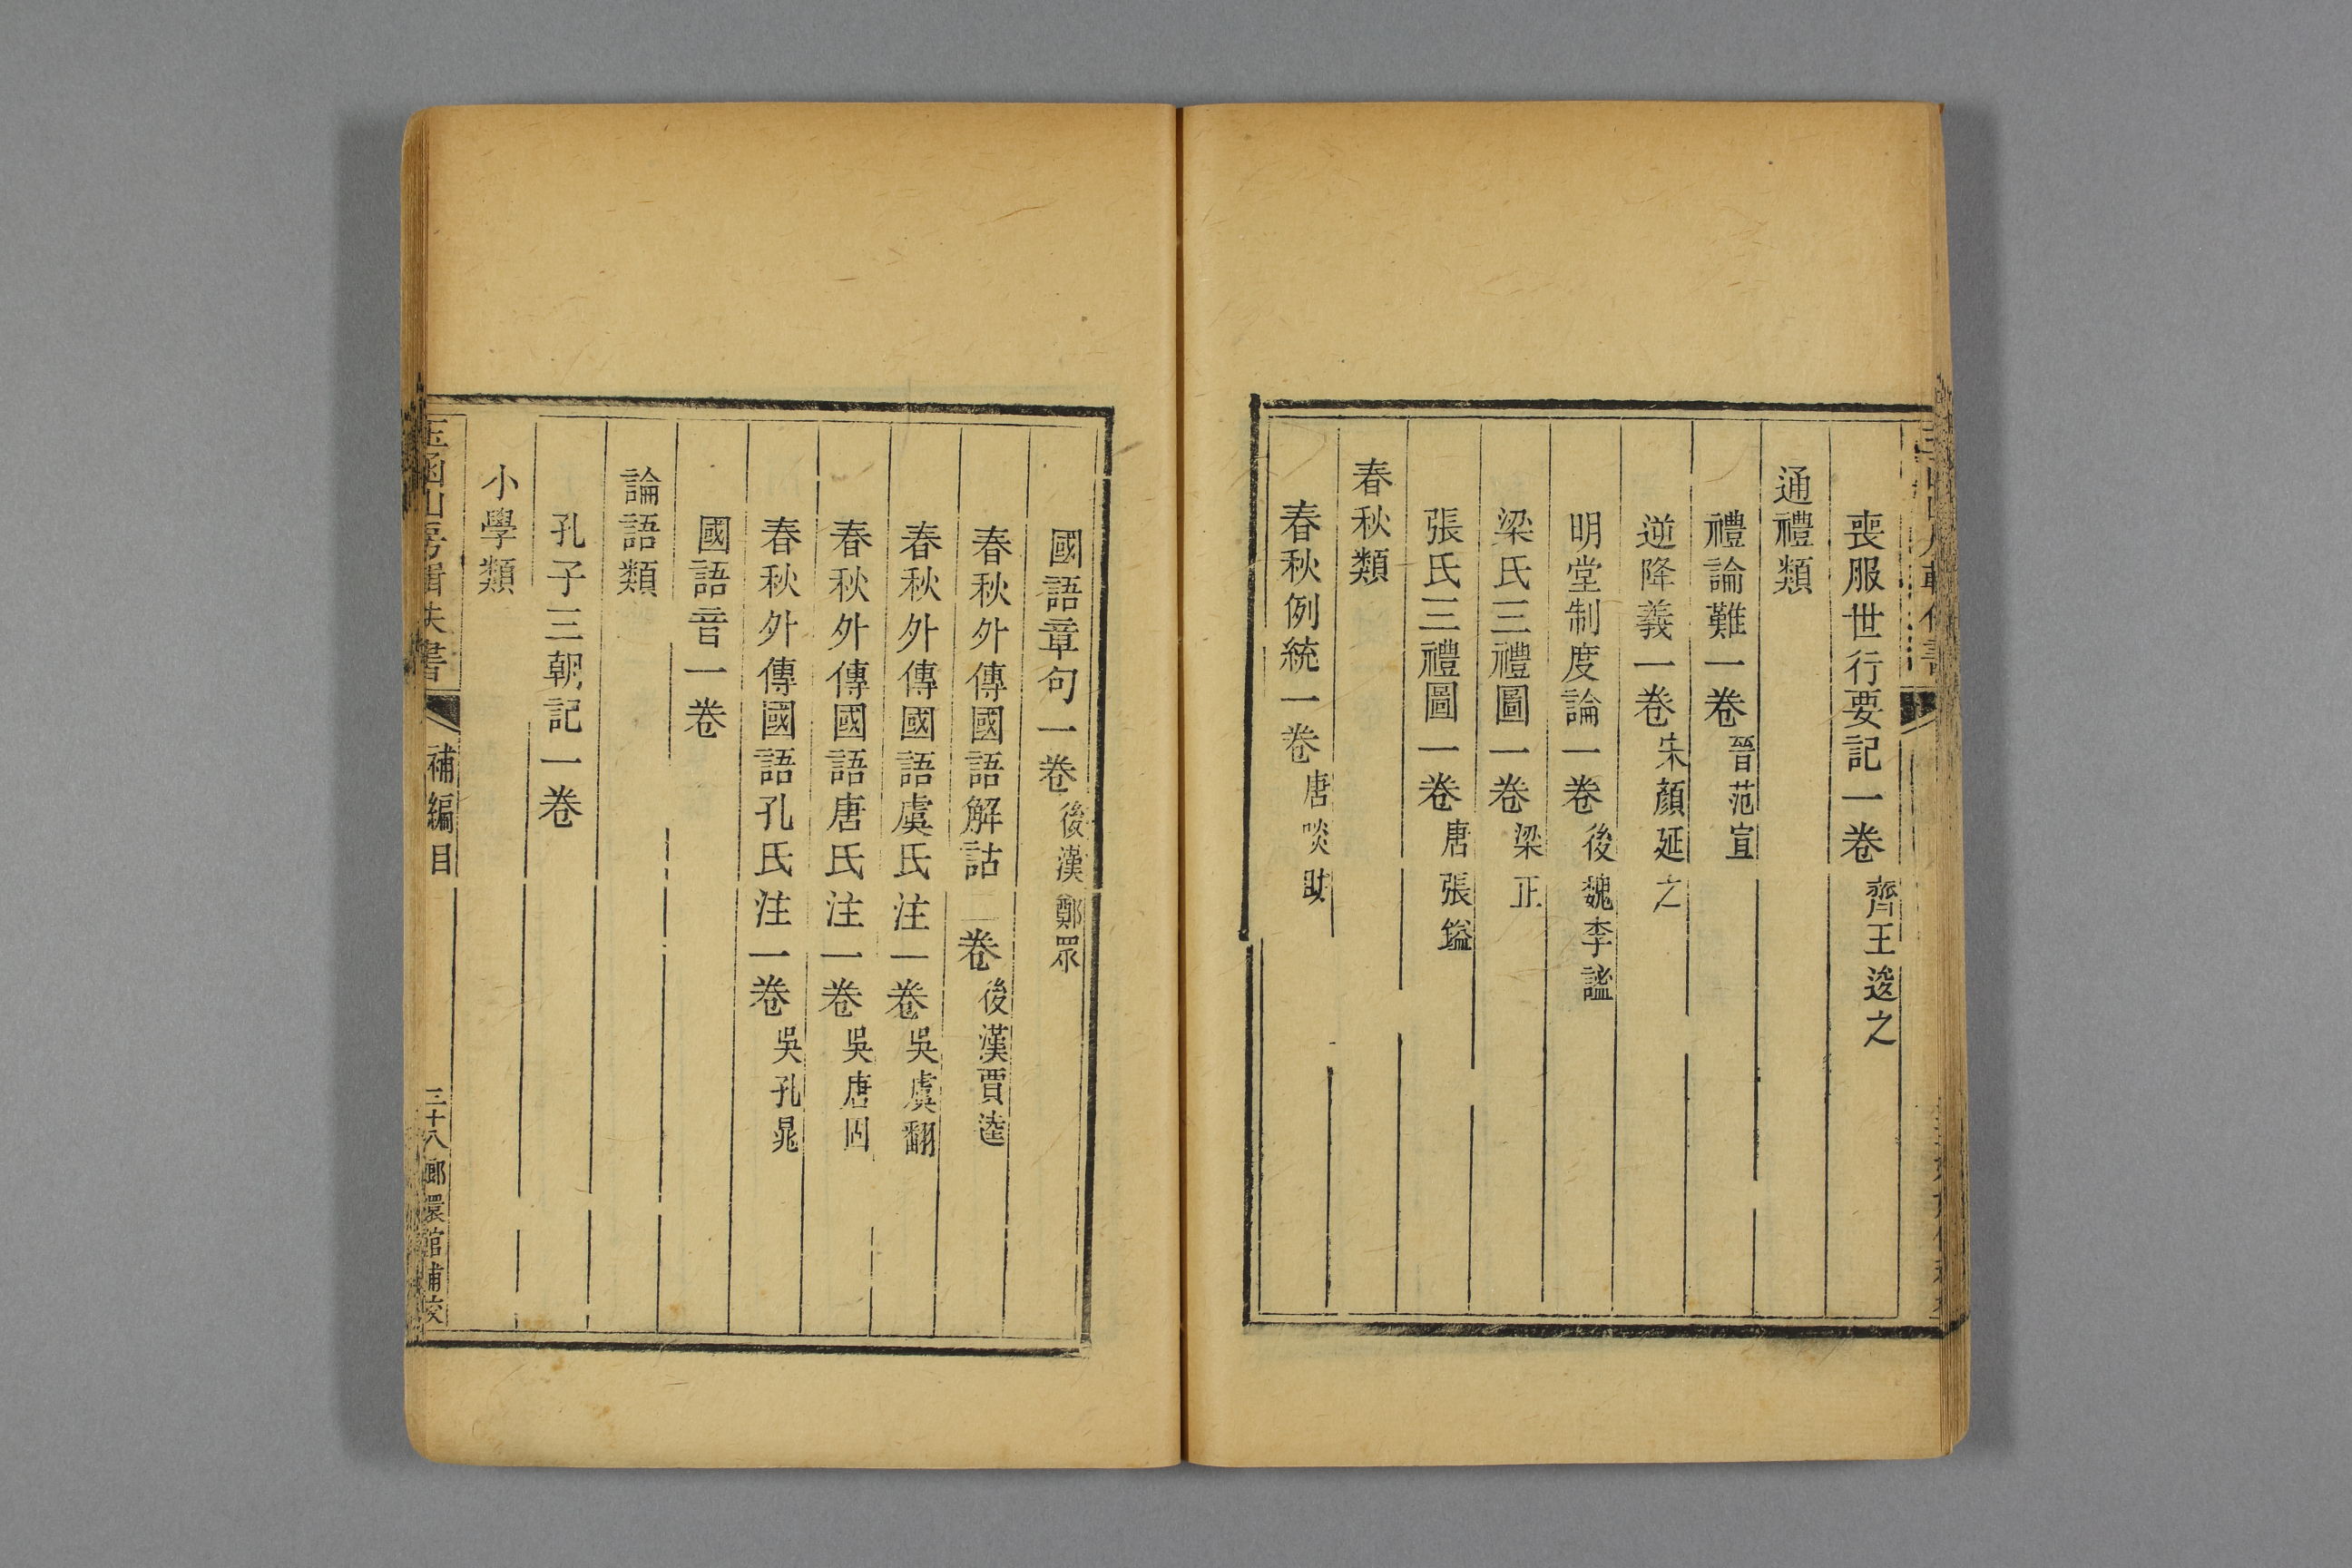 喪服世行要記一卷齊王逡之
通禮類
禮論難一卷晉范宣
逆降義一卷宋顏延之
明堂制度論一卷後魏李謐
梁氏三禮圖一卷梁正
張氏三禮圖一卷唐張鎰
春秋類
春秋例統一卷唐啖助
國語章句一卷後漢鄭眾
春秋外傳國語解詁二卷後漢賈逵
春秋外傳國語虞氏注一卷吳虞翻
春秋外傳國語唐氏注一卷吳唐固
春秋外傳國語孔氏注一卷吳孔晁
國語音一卷
論語類
孔子三朝記一卷
小學類
玉函山房輯佚書 補編目 三十八 嫏嬛館補校